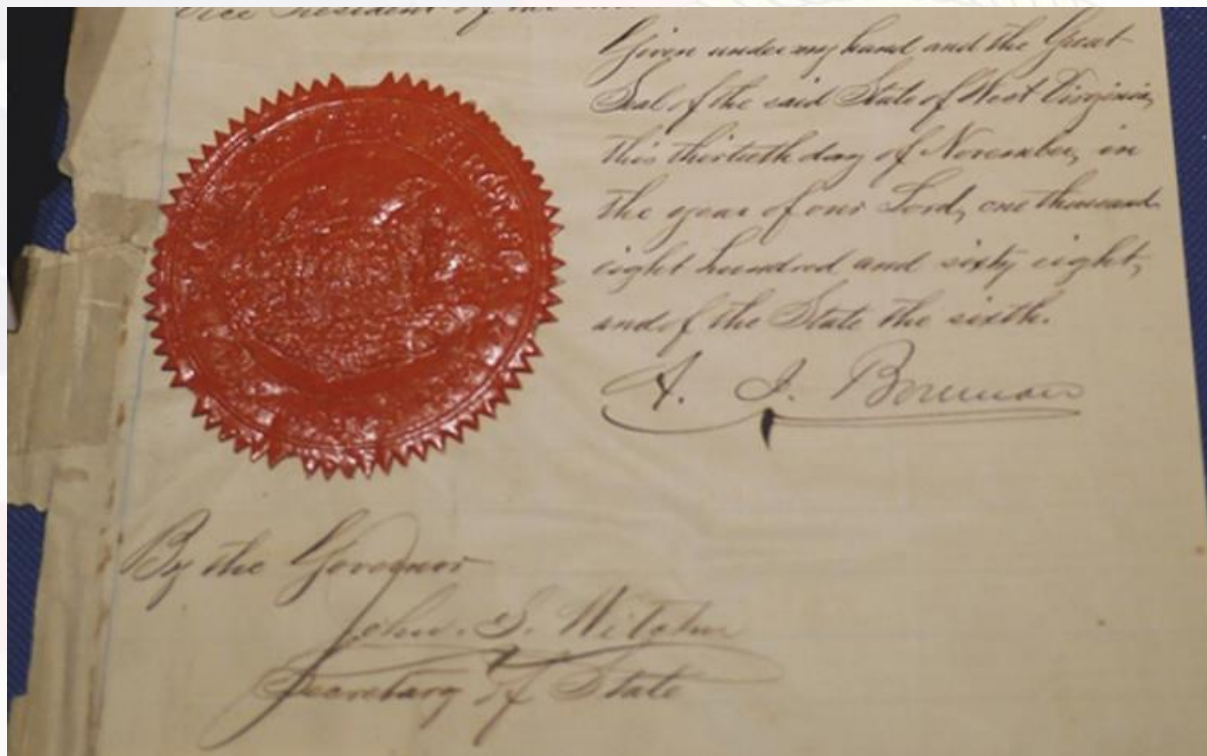 Vice President of the
Given under my hand and the Great
Seal of the said State of West Virginia,
this thirtieth day of November, in
the year of our Lord, one thousand
eight hundred and sixty eight,
and of the State the sixth.
A. I. Boreman
By the Governor
John. S. Witcher
Secretary of State